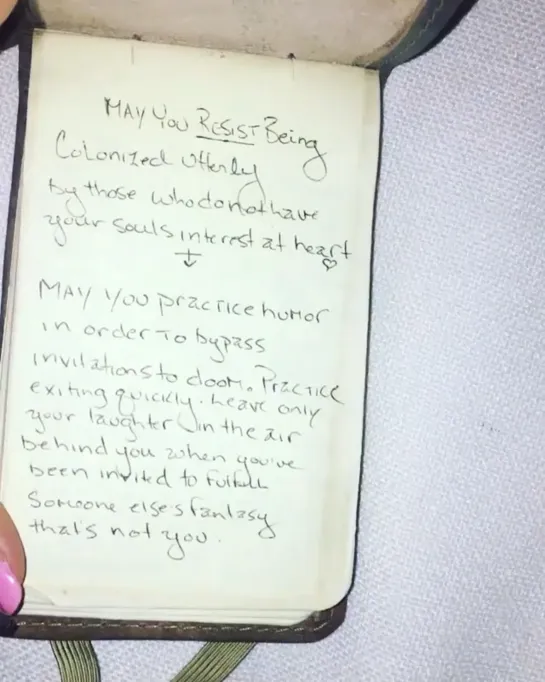 MAY YOU RESIST Being
Colonized utterly
by those who do not have
your souls interest at heart
MAY YOU practice humor
in order to bypass
invitations to doom. Practice
exiting quickly. Leave only
your laughter in the air
behind you when you've
been invited to fulfill
someone else's fantasy
that's not you.